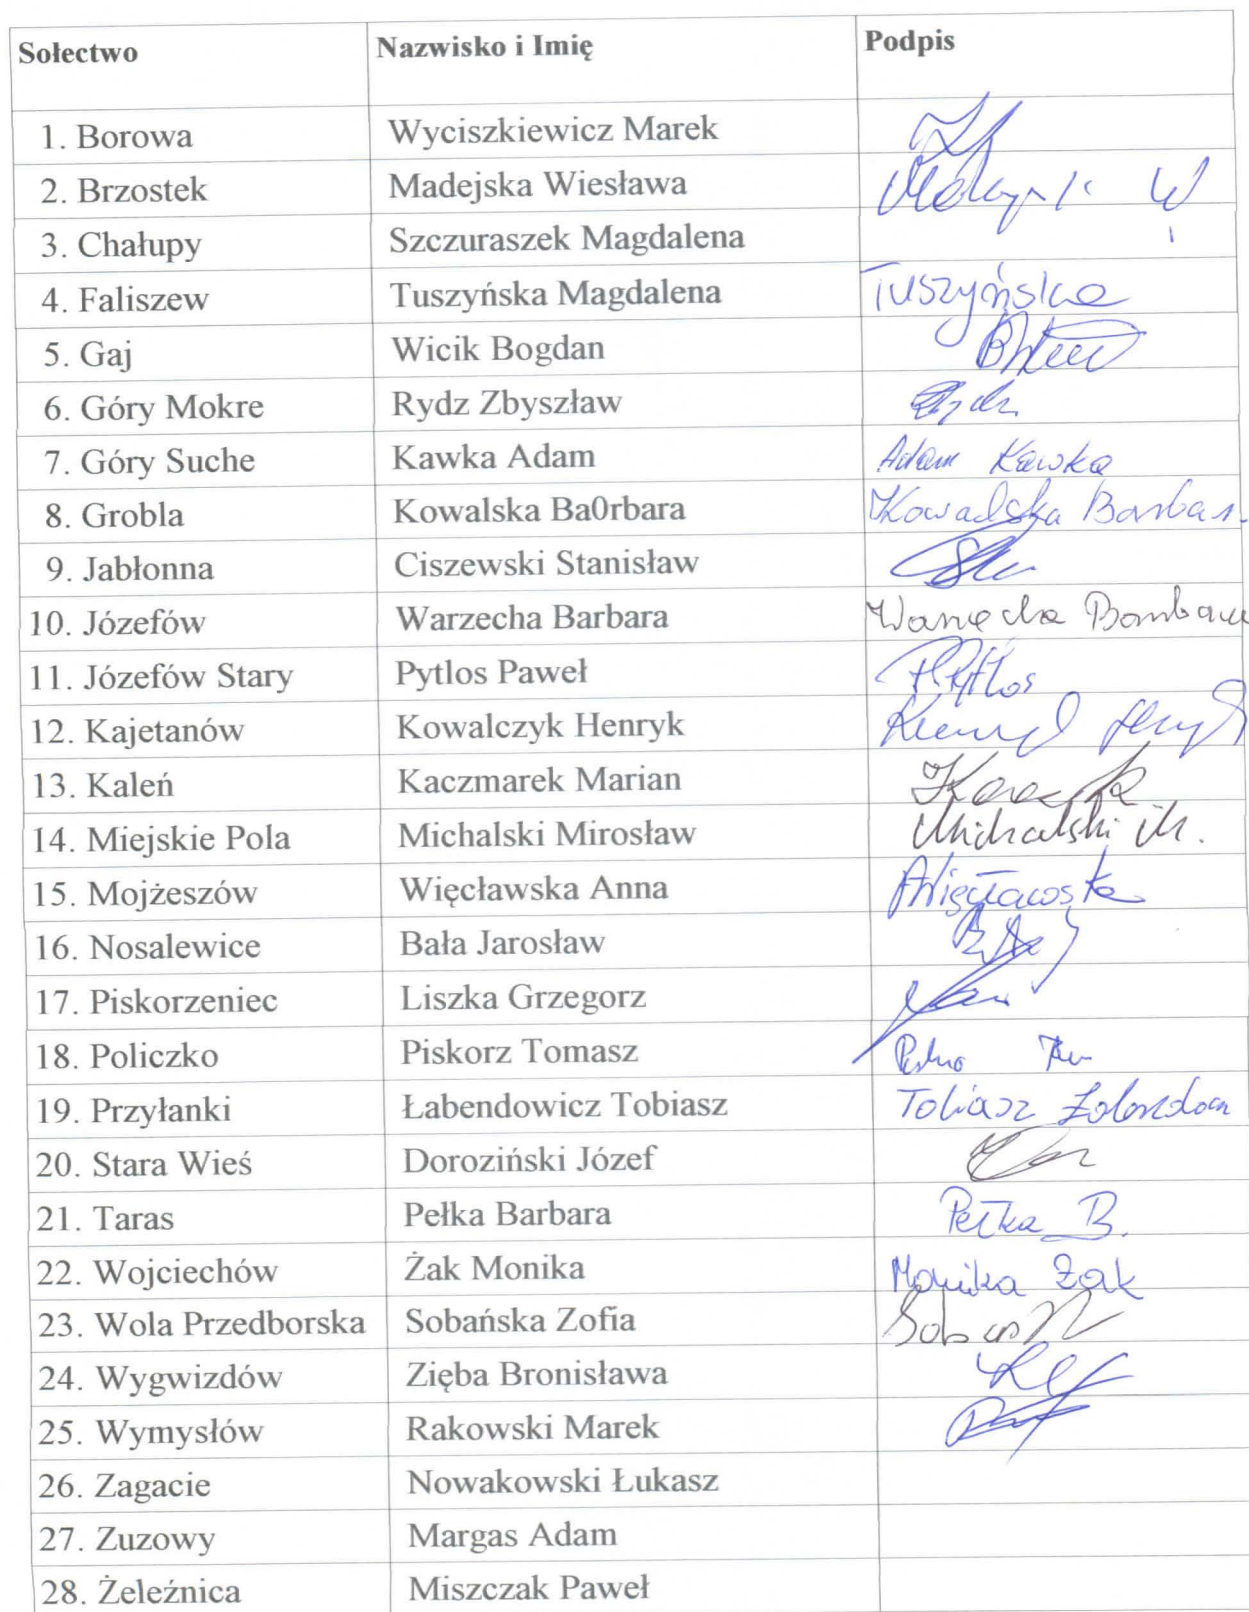 Sołectwo Nazwisko i Imię Podpis
1. Borowa Wyciszkiewicz Marek
2. Brzostek Madejska Wiesława
3. Chałupy Szczuraszek Magdalena
4. Faliszew Tuszyńska Magdalena Tuszyńska
5. Gaj Wicik Bogdan
6. Góry Mokre Rydz Zbyszław
7. Góry Suche Kawka Adam Adam Kawka
8. Grobla Kowalska Ba0rbara Kowalska
9. Jabłonna Ciszewski Stanisław
10. Józefów Warzecha Barbara
11. Józefów Stary Pytlos Paweł
12. Kajetanów Kowalczyk Henryk
13. Kaleń Kaczmarek Marian
14. Miejskie Pola Michalski Mirosław Michalski M.
15. Mojżeszów Więcławska Anna
16. Nosalewice Bała Jarosław
17. Piskorzeniec Liszka Grzegorz
18. Policzko Piskorz Tomasz
19. Przyłanki Łabendowicz Tobiasz Tobiasz
20. Stara Wieś Doroziński Józef
21. Taras Pełka Barbara Pełka B.
22. Wojciechów Żak Monika Monika Żak
23. Wola Przedborska Sobańska Zofia
24. Wygwizdów Zięba Bronisława
25. Wymysłów Rakowski Marek
26. Zagacie Nowakowski Łukasz
27. Zuzowy Margas Adam
28. Żeleźnica Miszczak Paweł